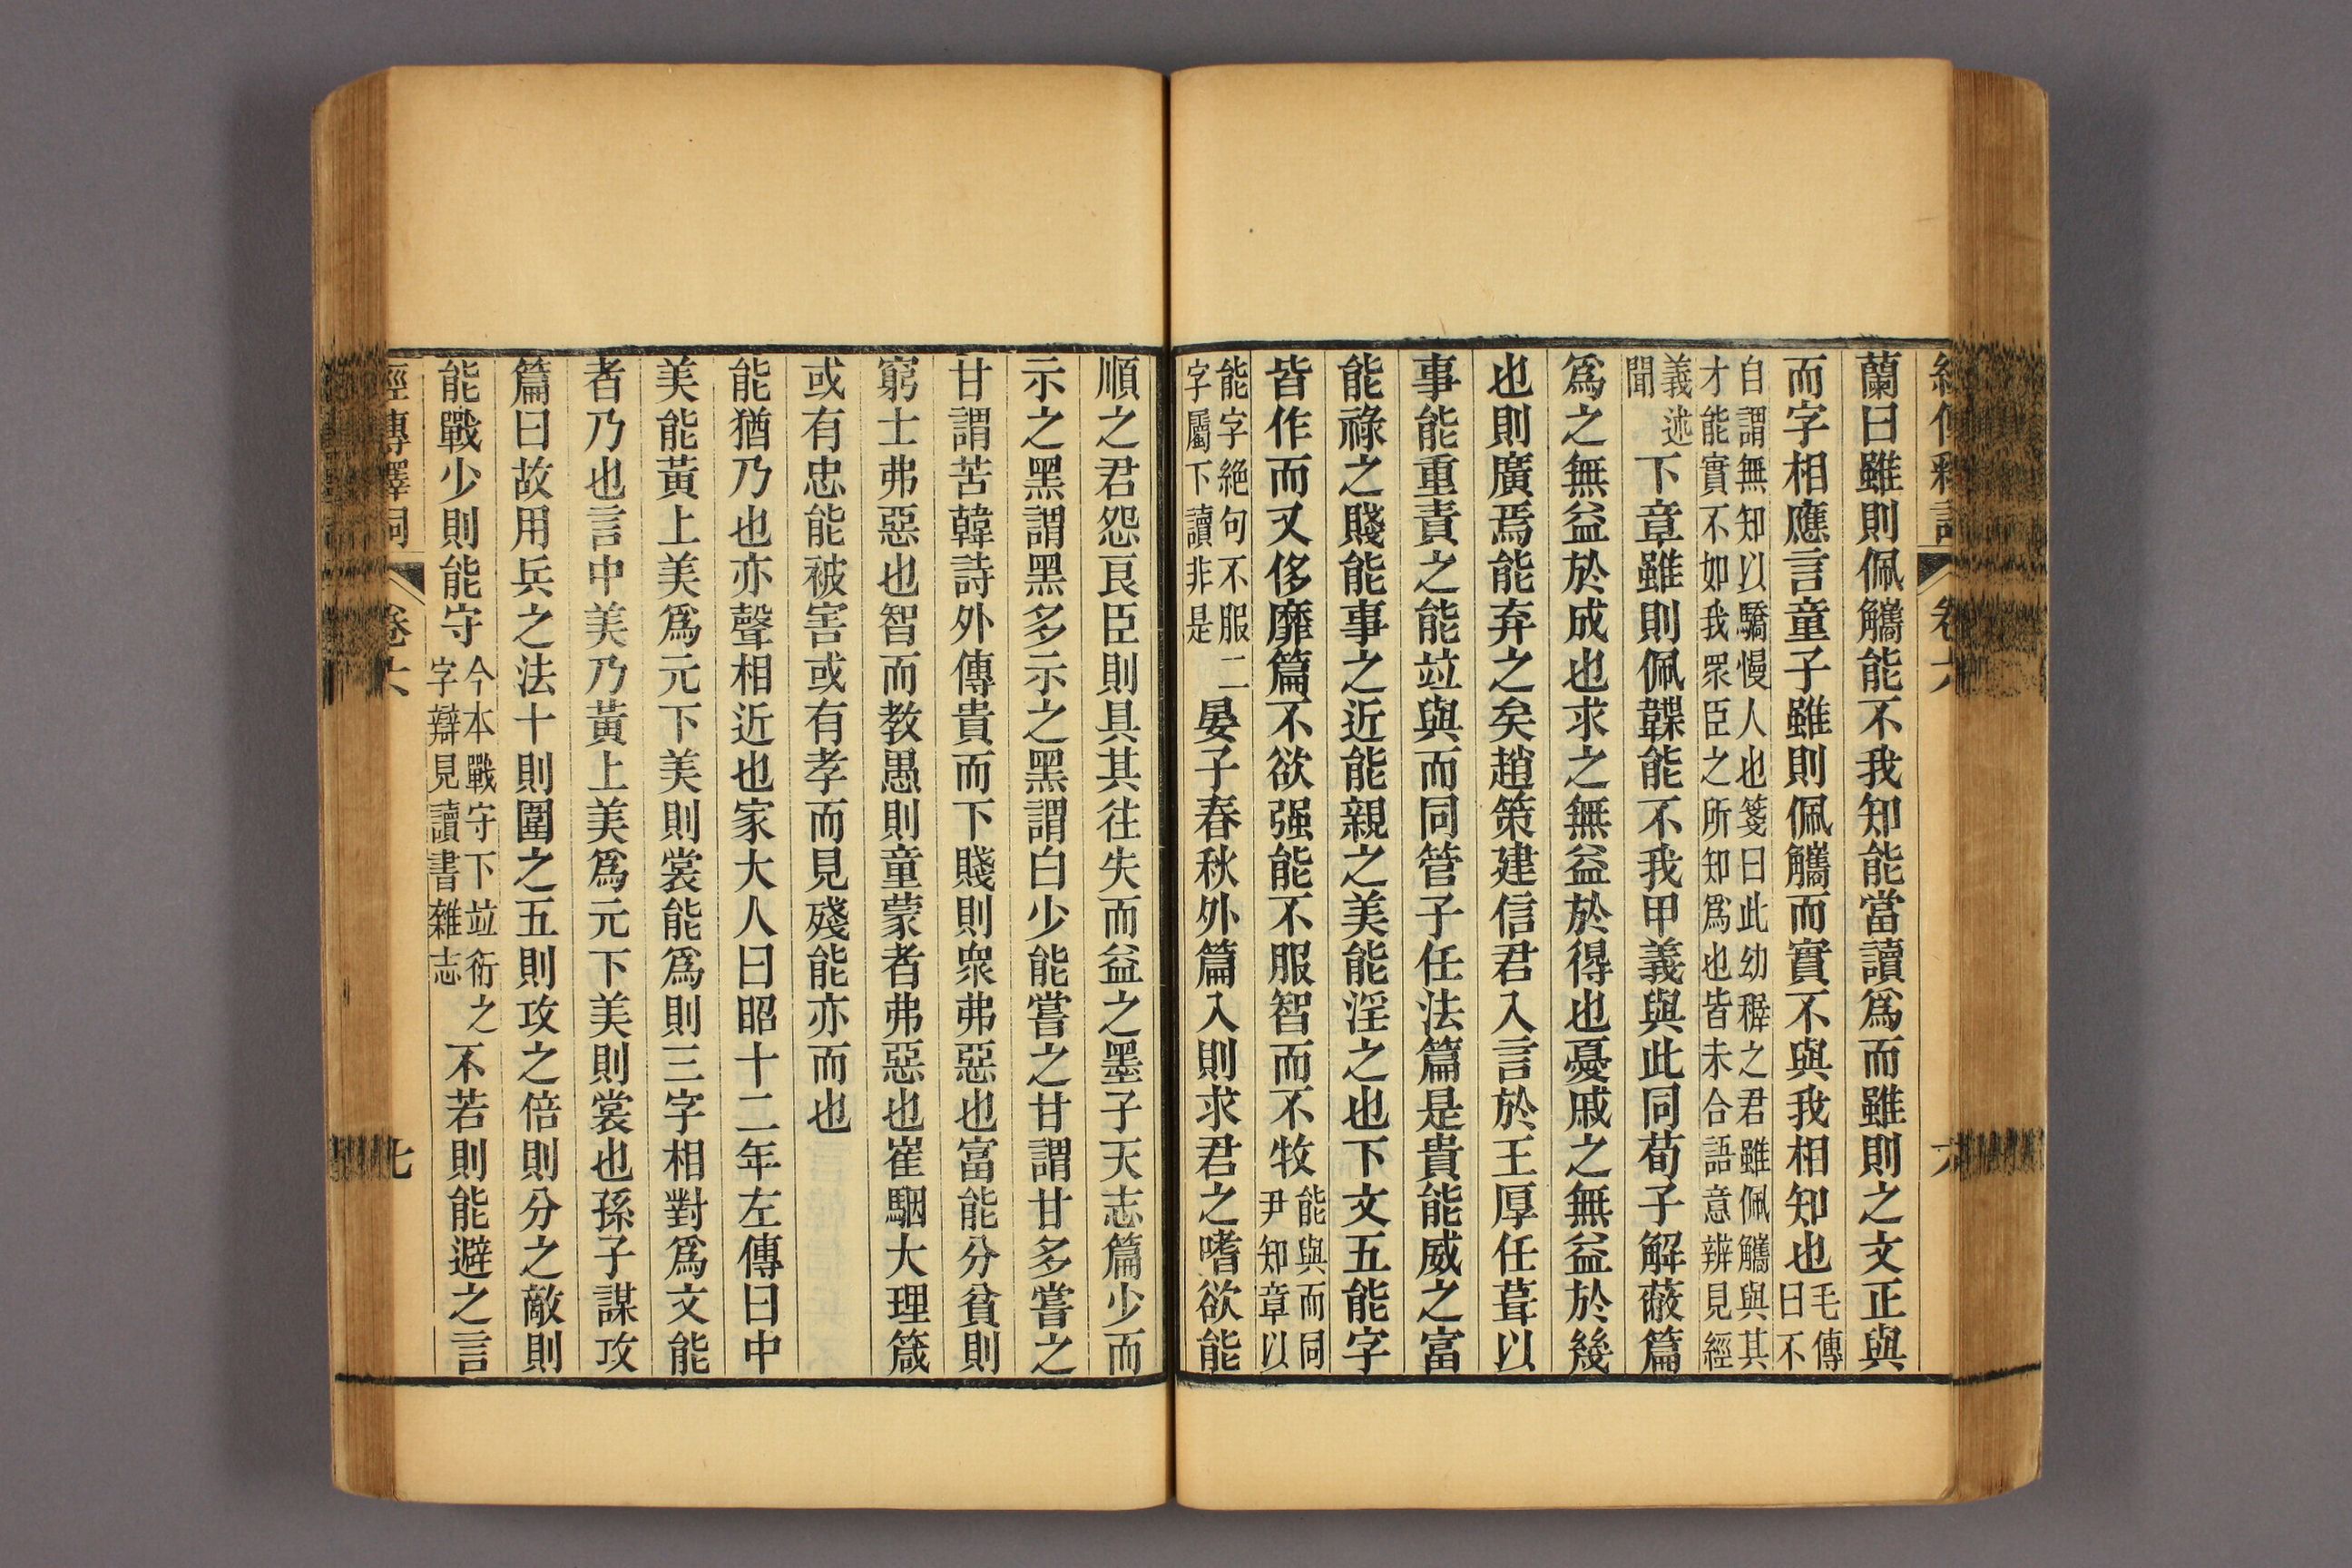 經傳釋詞 卷六 六
蘭曰雖則佩觿能不我知能當讀爲而雖則之文正與
而字相應言童子雖則佩觿而實不與我相知也毛傳曰不
自謂無知以驕慢人也箋曰此幼穉之君雖佩觿與其
才能實不如我眾臣之所知爲也皆未合語意辨見經
義述聞下章雖則佩韘能不我甲義與此同荀子解蔽篇
爲之無益於成也求之無益於得也憂戚之無益於幾
也則廣焉能弃之矣趙策建信君入言於王厚任葺以
事能重責之能竝與而同管子任法篇是貴能威之富
能祿之賤能事之近能親之美能淫之也下文五能字
皆作而又侈靡篇不欲强能不服智而不牧能與而同尹知章以
能字絕句不服二字屬下讀非是晏子春秋外篇入則求君之嗜欲能
順之君怨良臣則具其往失而益之墨子天志篇少而
示之黑謂黑多示之黑謂白少能嘗之甘謂甘多嘗之
甘謂苦韓詩外傳貴而下賤則眾弗惡也富能分貧則
窮士弗惡也智而教愚則童蒙者弗惡也崔駰大理箴
或有忠能被害或有孝而見殘能亦而也
能猶乃也亦聲相近也家大人曰昭十二年左傳曰中
美能黃上美爲元下美則裳能爲則三字相對爲文能
者乃也言中美乃黃上美爲元下美則裳也孫子謀攻
篇曰故用兵之法十則圍之五則攻之倍則分之敵則
能戰少則能守今本戰守下竝衍之字辯見讀書雜志不若則能避之言
經傳釋詞 卷六 七